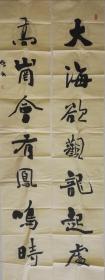 大海欲觀龍起處
高崗會有鳳鳴時